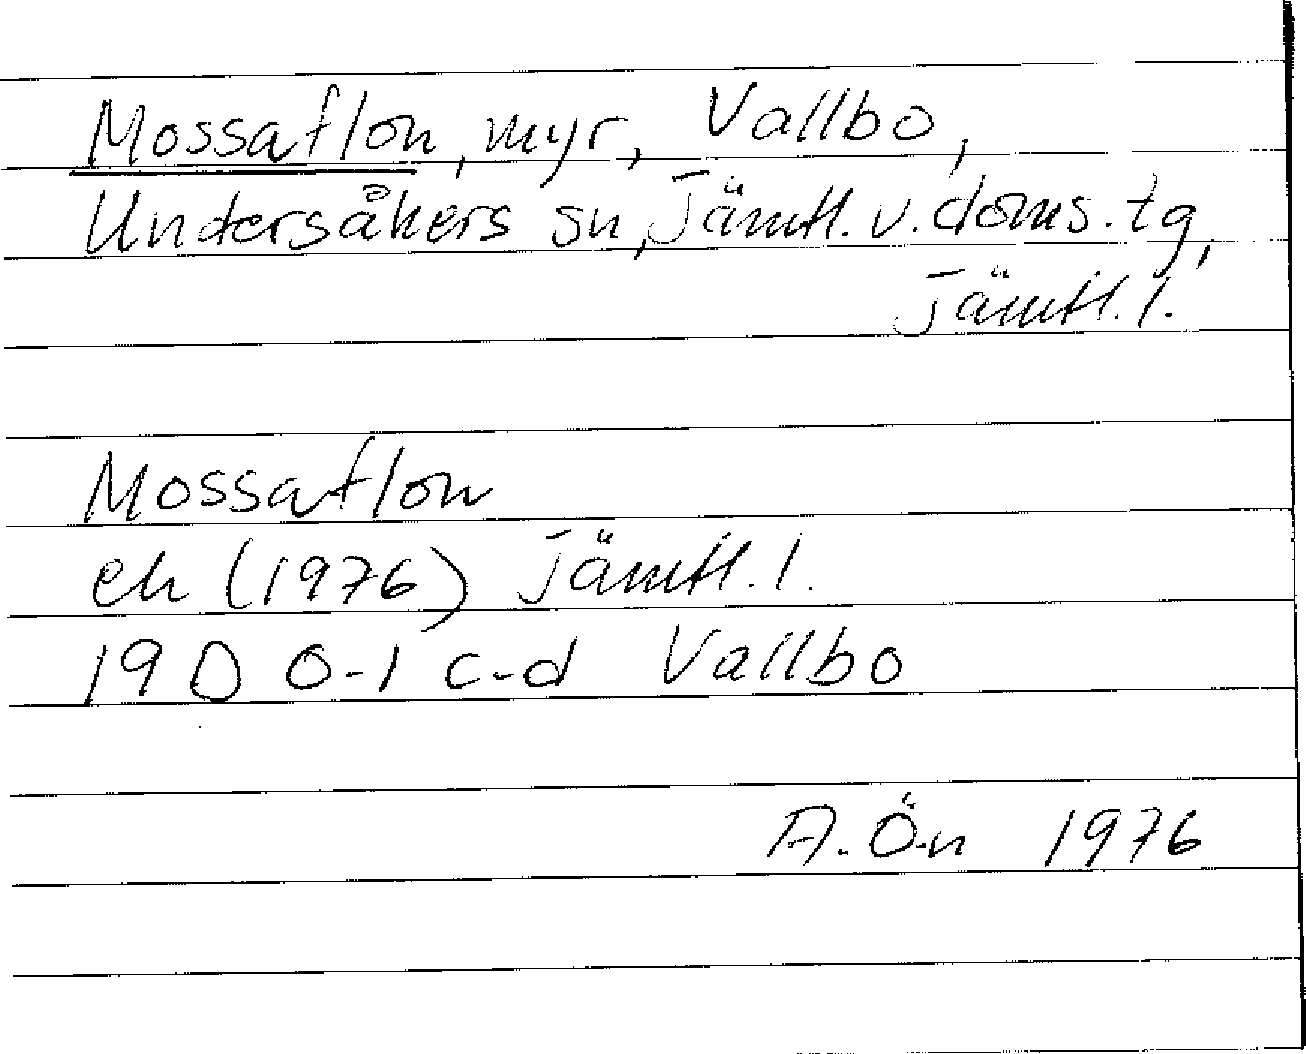 Mossaflon, myr, Vallbo,
Undersåkers sn, Jämtl. v. doms. tg,
Jämtl. l.
Mossaflon
ek (1976) Jämtl. l.
19 D 0-1 c-d Vallbo
A. Ö-n 1976